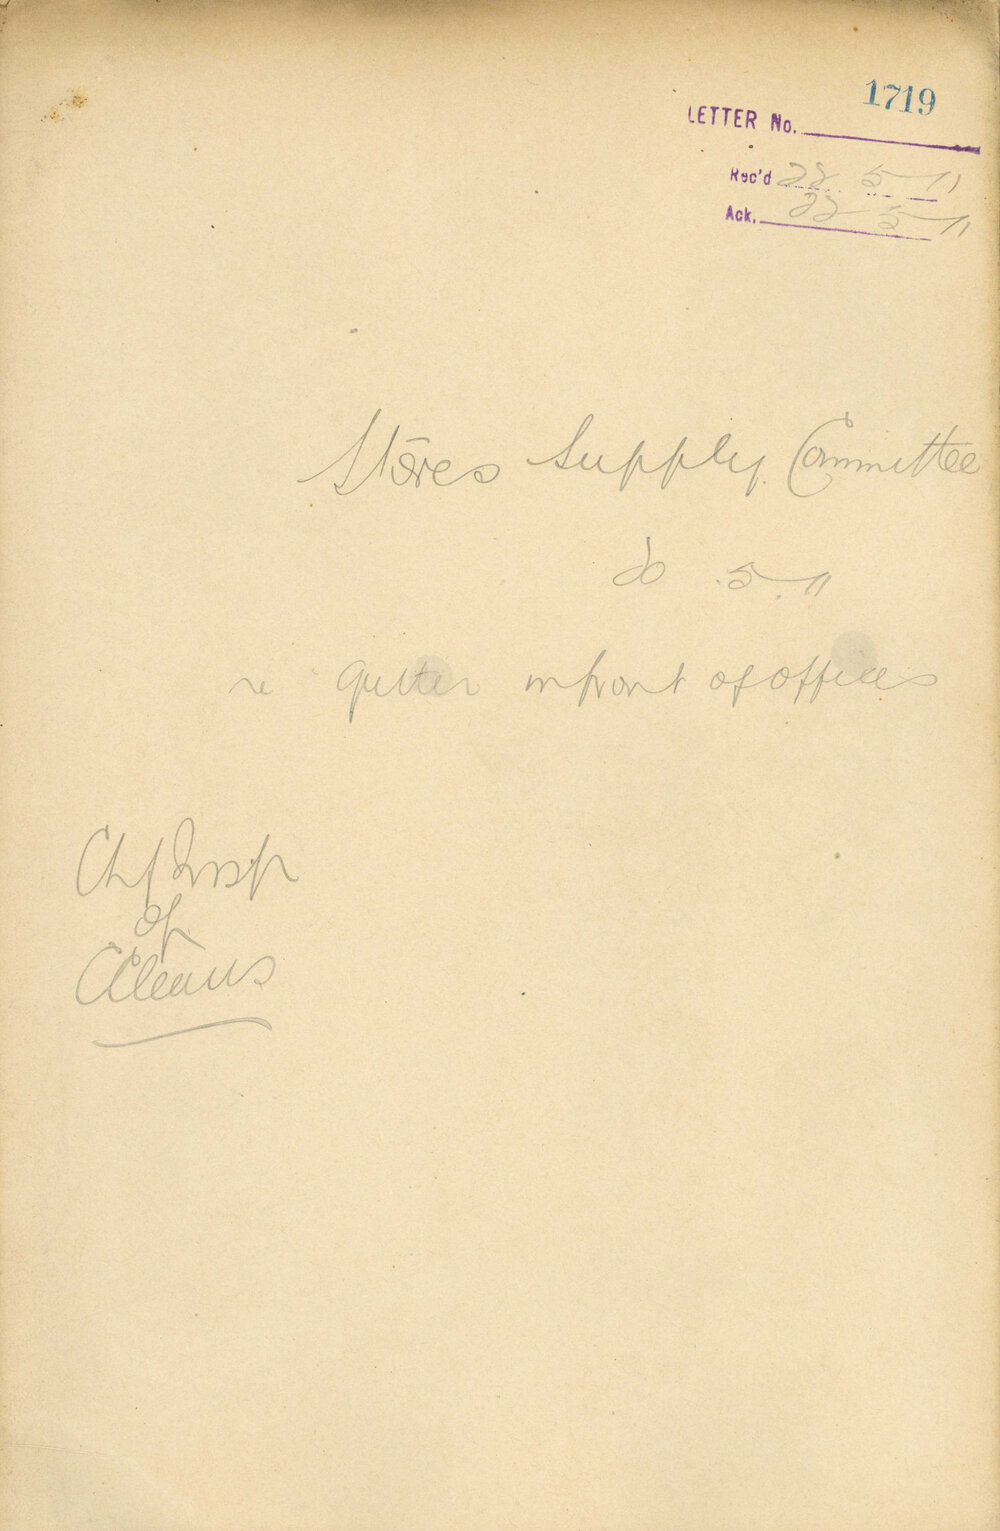 1719
LETTER No.
Rec'd 22 5 11
Ack. 22 5 11
Stores Supply Committee
20 5 11
re Gutter in front of offices
Chf Insp
of
Cleans